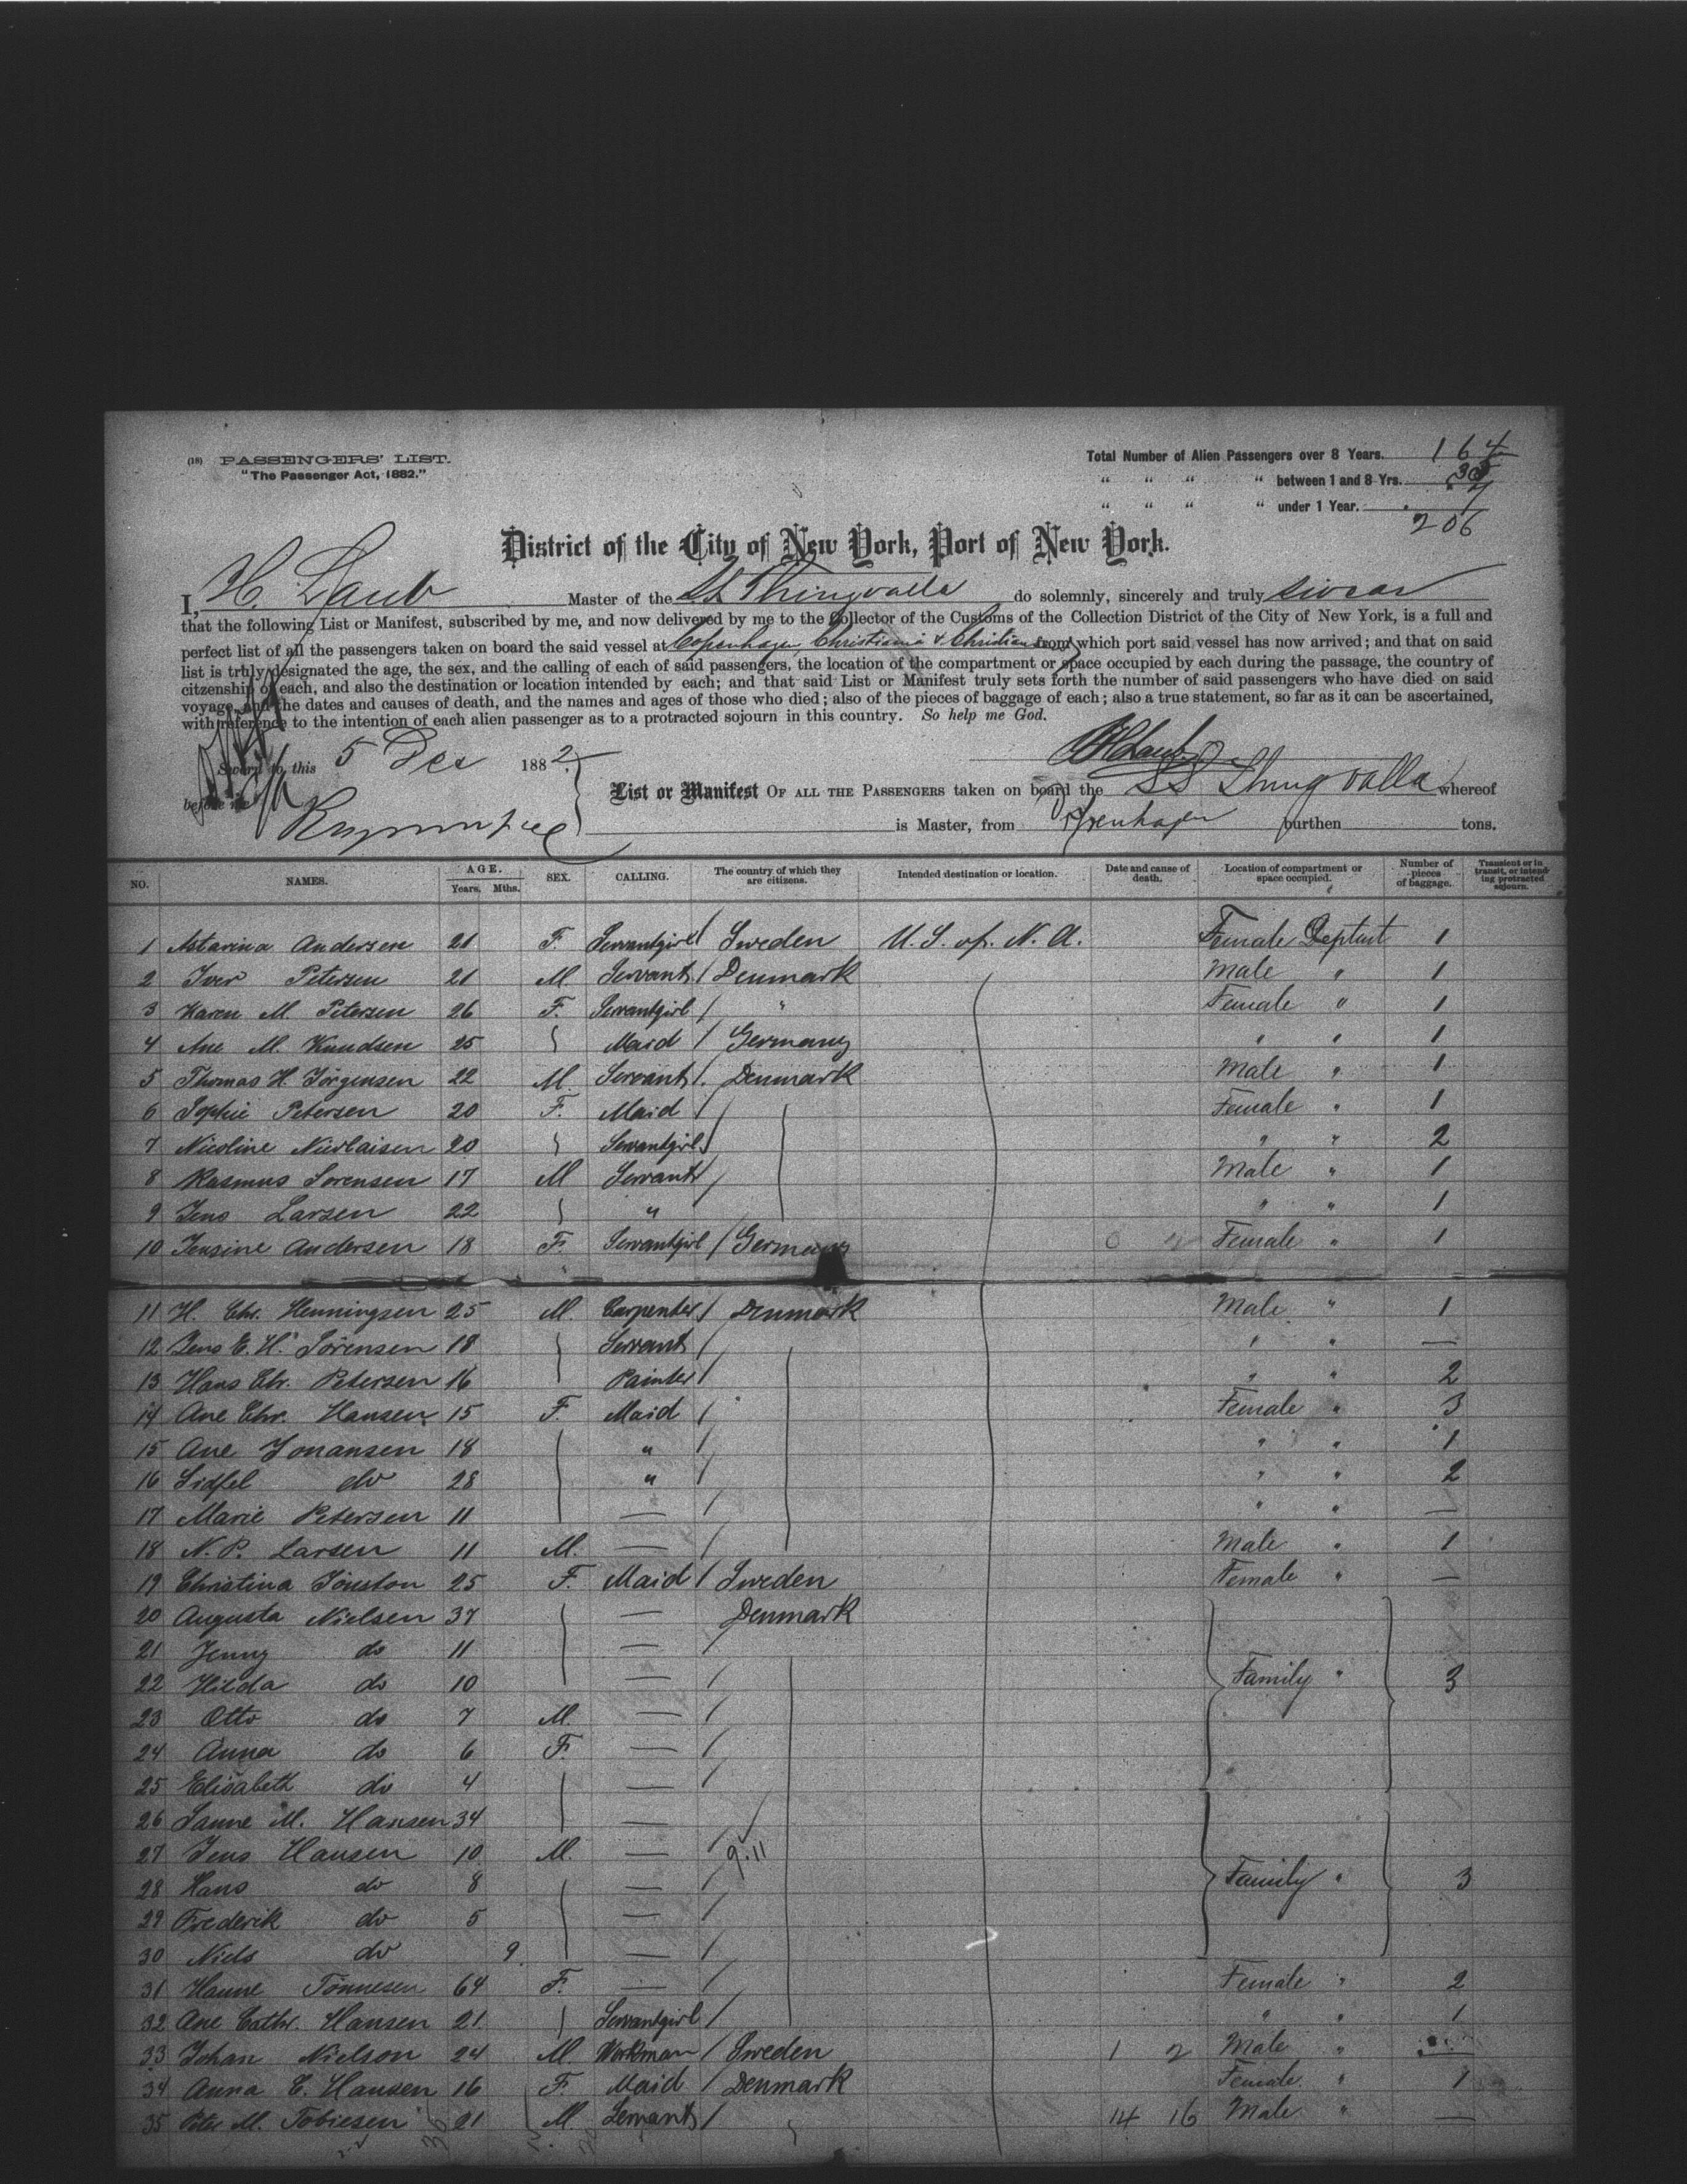 (18) PASSENGERS' LIST.
"The Passenger Act, 1882."
Total Number of Alien Passengers over 8 Years. 164
" " " " between 1 and 8 Yrs. 35
" " " " under 1 Year. 7
206
District of the City of New York, Port of New York.
I, H. Laub Master of the SS Thingvalla do solemnly, sincerely and truly swear
that the following List or Manifest, subscribed by me, and now delivered by me to the Collector of the Customs of the Collection District of the City of New York, is a full and
perfect list of all the passengers taken on board the said vessel at Copenhagen, Christiania & Christiansand from which port said vessel has now arrived; and that on said
list is truly designated the age, the sex, and the calling of each of said passengers, the location of the compartment or space occupied by each during the passage, the country of
citzenship of each, and also the destination or location intended by each; and that said List or Manifest truly sets forth the number of said passengers who have died on said
voyage, and the dates and causes of death, and the names and ages of those who died; also of the pieces of baggage of each; also a true statement, so far as it can be ascertained,
with reference to the intention of each alien passenger as to a protracted sojourn in this country. So help me God.
Sworn to this 5 Dec 1882. H Laub
before me
List or Manifest OF ALL THE PASSENGERS taken on board the SS Thingvalla whereof
is Master, from Copenhagen burthen tons.
NO. NAMES. AGE. Years. Mths. SEX. CALLING. The country of which they are citizens. Intended destination or location. Date and cause of death. Location of compartment or space occupied. Number of pieces of baggage. Transient or in transit, or intending protracted sojourn.
1 Astarina Andersen 21 F. Servantgirl / Sweden U. S. of. N. A. Female Deptmt 1
2 Iver Petersen 21 M Servant / Denmark Male " 1
3 Karen M Petersen 26 F. Servantgirl / " Female " 1
4 Ane M. Knudsen 25 Maid / Germany " " 1
5 Thomas H. Jörgensen 22 M. Servant / Denmark Male " 1
6 Sophie Petersen 20 F. Maid / Female " 1
7 Nicoline Nicolaisen 20 Servantgirl / " " 2
8 Rasmus Sorensen 17 M Servant / Male " 1
9 Jens Larsen 22 " " " 1
10 Jensine Andersen 18 F. Servantgirl / Germany Female " 1
11 H. Chr. Henningsen 25 M. Carpenter / Denmark Male " 1
12 Jens E. H. Sörensen 18 Servant / " " —
13 Hans Chr. Petersen 16 Painter / " " 2
14 Ane Chr. Hansen 15 F. Maid / Female " 3
15 Ane Jonansen 18 " / " " 1
16 Sidsel do 28 " / " " 2
17 Marie Petersen 11 — / " " —
18 N. P. Larsen 11 M. — / Male " 1
19 Christina Jönston 25 F. Maid / Sweden Female " —
20 Augusta Nielsen 37 — Denmark
21 Jenny do 11 — /
22 Hilda do 10 — / Family " 3
23 Otto do 7 M. — /
24 Anna do 6 F. — /
25 Elisabeth do 4 — /
26 Sanne M. Hansen 34 —
27 Jens Hansen 10 M. — / 9.11
28 Hans do 8 — / Family " 3
29 Frederik do 5 — /
30 Niels do 9 — /
31 Hanne Tönnesen 64 F. — / Female " 2
32 Ane Cathr. Hansen 21 Servantgirl / " " 1
33 Johan Nielson 24 M. Workman / Sweden 1 2 Male "
34 Anna E. Hansen 16 F. Maid / Denmark Female " 1
35 Peter M. Tobiesen 21 M. Servant / 14 16 Male " —